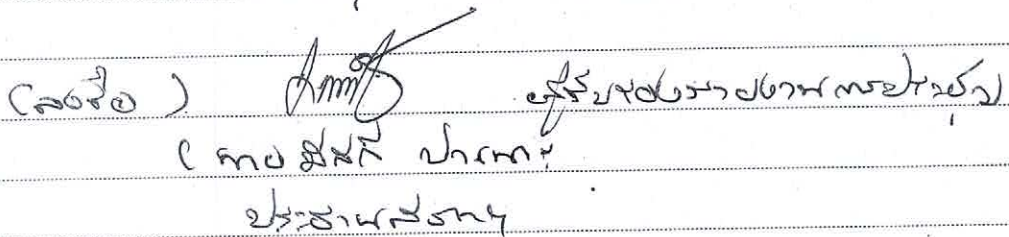 (ลงชื่อ) ผู้รับรองรายงานการประชุม
(นาย
ประธานสภาฯ